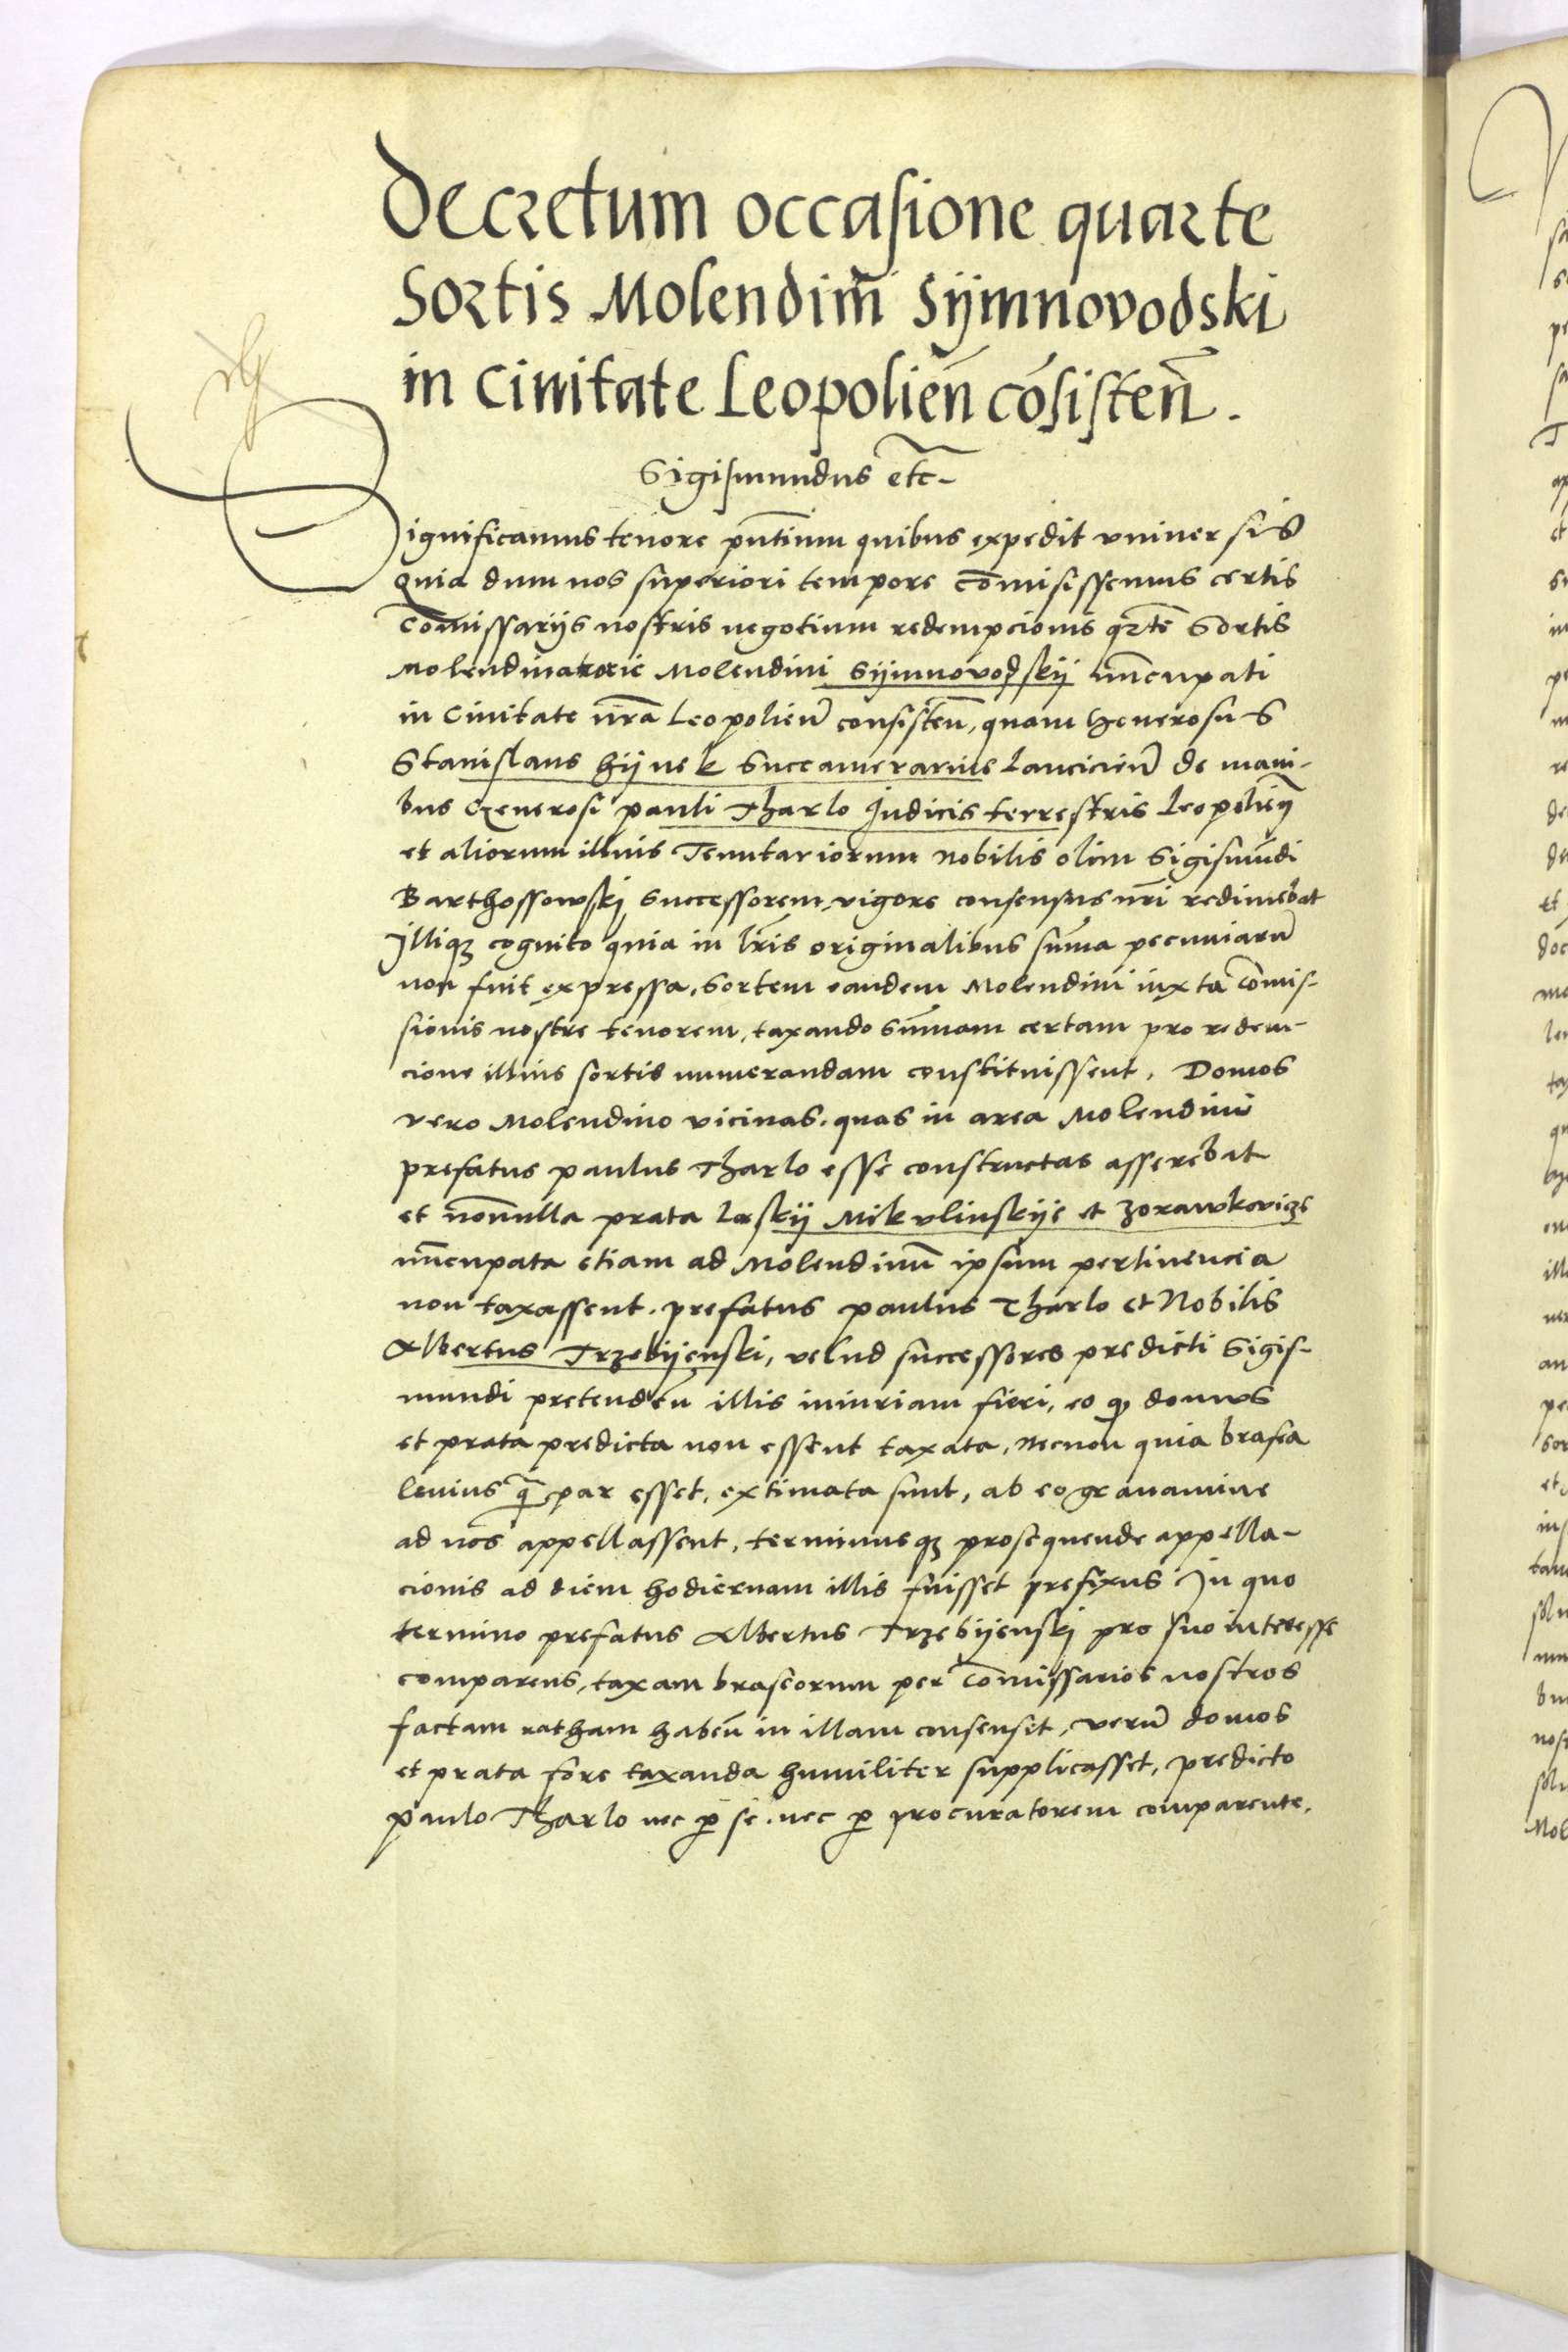 Decretum occasione quarte
Sortis Molendini Sijmnovodski
in Civitate Leopolien̄ cōsisten̄.
Sigismundus etc̄
Significamus tenore pn̄tium quibus expedit vniversis
quia dum nos superiori tempore com̄isissemus certis
Com̄issarijs nostris negotium redempcionis qrte Sortis
Molendinatorie Molendini Sijmnovodskij nūcupati
in Civitate nr̄a Leopolien̄ consisten̄, quam Generosus
Stanislaus hijnek Succamerarius Lancicien̄ de mani-
bus Generosi pauli Tharlo Judicis terrestris Leopolien̄
et aliorum illius Tenutariorum Nobilis olim Sigismūdi
Barthossowskj successorem, vigore consensus nr̄i redimebat
Illiqz cognito quia in lr̄is originalibus sum̄a pecuniarū
non fuit expressa, Sortem eandem Molendini iuxta com̄is-
sionis nostre tenorem, taxando sum̄am certam pro redem-
cione illius sortis numerandam constituissent. Domos
vero Molendino vicinas, quas in area Molendini
prefatus paulus Tharlo esse constructas asserebat
et nōnulla prata Laskij Mikulinskije et Zorawkovicze
nūcupata etiam ad Molendinū ipsum pertinencia
non taxassent. prefatus paulus Tharlo et Nobilis
Albertus Trzebijenski, velud successores predicti Sigis-
mundi pretenden̄ illis iniuriam fieri, eo q domus
et prata predicta non essent taxata, Necnon quia brasea
levius q̄ par esset, extimata sunt, ab eo gravamine
ad nos appellassent, terminusqz prosequende appella-
cionis ad diem hodiernam illis fuisset prefixus In quo
termino prefatus Albertus Trzebijenskj pro suo interesse
comparens, taxam braseorum per Com̄issarios nostros
factam ratham haben̄ in illam consensit, verū domos
et prata fore taxanda humiliter supplicasset, predicto
paulo Tharlo nec p se. nec p procuratorem comparente.